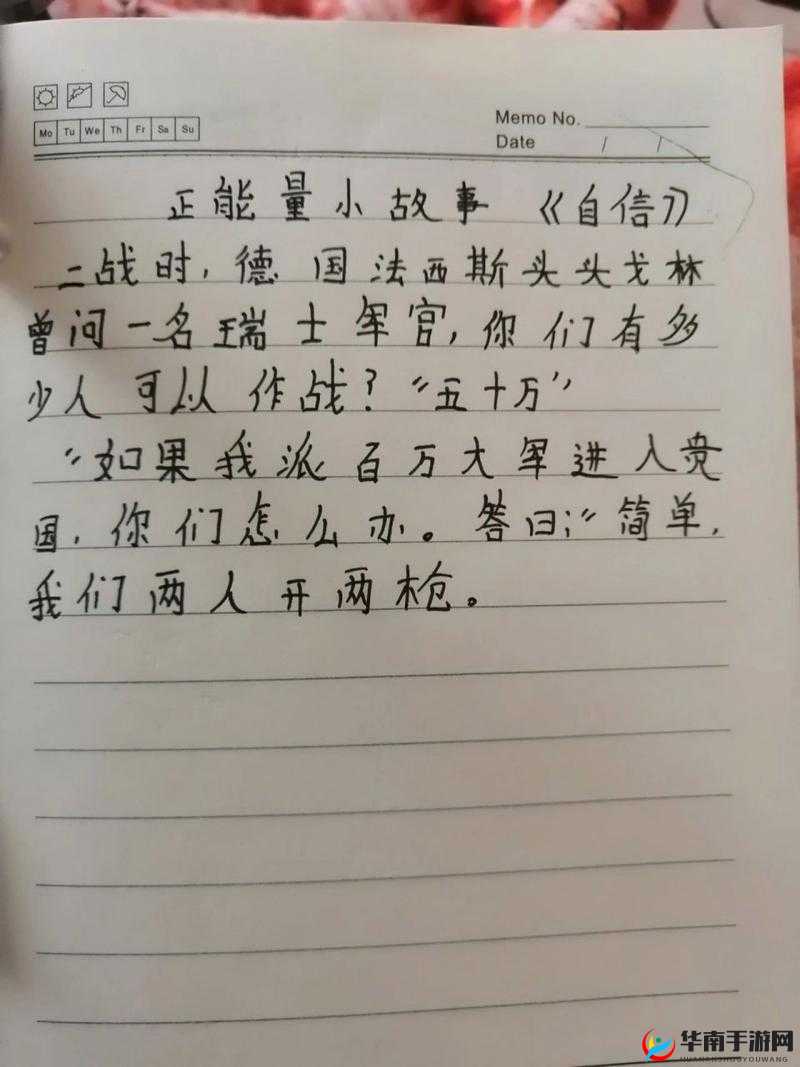 Mo Tu We Th Fr Sa Su
Memo No.
Date / /
正能量小故事 《自信》
二战时，德国法西斯头头戈林
曾问一名瑞士军官，你们有多
少人可以作战？“五十万”
“如果我派百万大军进入贵
国，你们怎么办。答曰；“简单，
我们两人开两枪。
华南手游网
HUANANSHOUYOUWANG